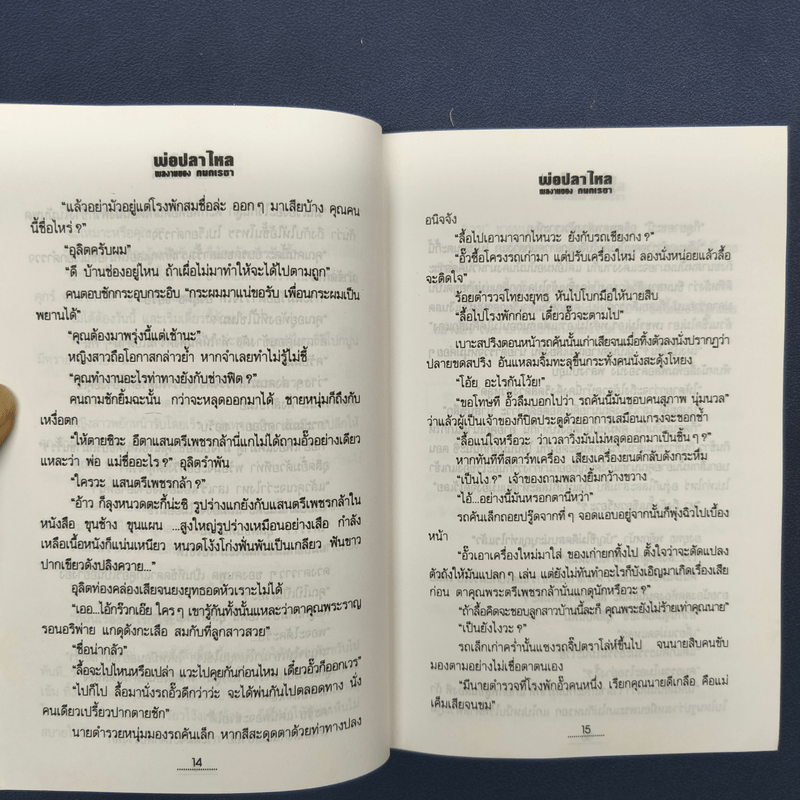 พ่อปลาไหล
ผลงานของ กนกเรขา
“แล้วอย่ามัวอยู่แต่โรงพักสมชื่อล่ะ ออกๆ มาเสียบ้าง คุณคน
นี้ชื่อไหร่ ?”
“อุลิตครับผม”
“ดี บ้านช่องอยู่ไหน ถ้าเผื่อไม่มาทำให้จะได้ไปตามถูก”
คนตอบชักกระอุบกระอิบ “กระผมมาแน่ขอรับ เพื่อนกระผมเป็น
พยานได้”
“คุณต้องมาพรุ่งนี้แต่เช้านะ”
หญิงสาวถือโอกาสกล่าวย้ำ หากจำเลยทำไม่รู้ไม่ชี้
“คุณทำงานอะไรท่าทางยังกับช่างฟิต ?”
คนถามชักยิ้มฉะนั้น กว่าจะหลุดออกมาได้ ชายหนุ่มก็ถึงกับ
เหงื่อตก
“ให้ตายซิวะ อีตาแสนตรีเพชรกล้านี่แกไม่ได้ถามอั๊วอย่างเดียว
แหละว่า พ่อ แม่ชื่ออะไร ?” อุลิตรำพัน
“ใครวะ แสนตรีเพชรกล้า ?”
“อ้าว ก็ลุงหนวดตะกี้น่ะซิ รูปร่างแกยังกับแสนตรีเพชรกล้าใน
หนังสือ ขุนช้าง ขุนแผน ...สูงใหญ่รูปร่างเหมือนอย่างเสือ กำลัง
เหลือเนื้อหนังก็แน่นเหนียว หนวดโง้งโก่งพันพันเป็นเกลียว ฟันขาว
ปากเขียวดังปลิงควาย...”
อุลิตท่องคล่องเสียจนยงยุทธอดหัวเราะไม่ได้
“เออ...ไอ้กร๊วกเอ๊ย ใครๆ เขารู้กันทั้งนั้นแหละว่าตาคุณพระราญ
รอนอริพ่าย แกดุดังกะเสือ สมกับที่ลูกสาวสวย”
“ชื่อน่ากลัว”
“ลื้อจะไปไหนหรือเปล่า แวะไปคุยกันก่อนไหม เดี๋ยวอั๊วก็ออกเวร”
“ไปก็ไป ลื้อมานั่งรถอั๊วดีกว่าว่ะ จะได้พ่นกันไปตลอดทาง นั่ง
คนเดียวเปรี้ยวปากตายชัก”
นายตำรวจหนุ่มมองรถคันเล็ก หากสีสะดุดตาด้วยท่าทางปลง
14
พ่อปลาไหล
ผลงานของ กนกเรขา
อนิจจัง
“ลื้อไปเอามาจากไหนวะ ยังกับรถเซียงกง ?”
“อั๊วซื้อโครงรถเก่ามา แต่ปรับเครื่องใหม่ ลองนั่งหน่อยแล้วลื้อ
จะติดใจ”
ร้อยตำรวจโทยงยุทธ หันไปโบกมือให้นายสิบ
“ลื้อไปโรงพักก่อน เดี๋ยวอั๊วจะตามไป”
เบาะสปริงตอนหน้ารถคันนั้นเก่าเสียจนเมื่อทิ้งตัวลงนั่งปรากฏว่า
ปลายขดสปริง อันแหลมจิ้มทะลุขึ้นกระทั่งคนนั่งสะดุ้งโหยง
“โอ๊ย อะไรกันโว้ย!”
“ขอโทษที อั๊วลืมบอกไปว่า รถคันนี้มันชอบคนสุภาพ นุ่มนวล”
ว่าแล้วผู้เป็นเจ้าของก็ปิดประตูด้วยอาการเสมือนเกรงจะชอกช้ำ
“ลื้อแน่ใจหรือวะ ว่าเวลาวิ่งมันไม่หลุดออกมาเป็นชิ้นๆ ?”
หากทันทีที่สตาร์ทเครื่อง เสียงเครื่องยนต์กลับดังกระหึ่ม
“เป็นไง ?” เจ้าของถามพลางยิ้มกว้างขวาง
“ไอ้...อย่างนี้มันหรอกตานี่หว่า”
รถคันเล็กถอยปรู๊ดจากที่ๆ จอดแอบอยู่จากนั้นก็พุ่งฉิวไปเบื้อง
หน้า
“อั๊วเอาเครื่องใหม่มาใส่ ของเก่ายกทิ้งไป ตั้งใจว่าจะดัดแปลง
ตัวถังให้มันแปลกๆ เล่น แต่ยังไม่ทันทำอะไรก็บังเอิญมาเกิดเรื่องเสีย
ก่อน ตาคุณพระแสนตรีเพชรกล้านั่นแกดุนักหรือวะ ?”
“ถ้าลื้อคิดจะชอบลูกสาวบ้านนี้ละก็ คุณพระยังไม่ร้ายเท่าคุณนาย”
“เป็นยังไงวะ ?”
รถเล็กเก่าคร่ำนั้นแซงรถจี๊ปตราโล่ห์ขึ้นไป จนนายสิบคนขับ
มองตามอย่างไม่เชื่อตาตนเอง
“มีนายตำรวจที่โรงพักอั๊วคนหนึ่ง เรียกคุณนายดีเกลือ คือแม่
เค็มเสียจนขม”
15